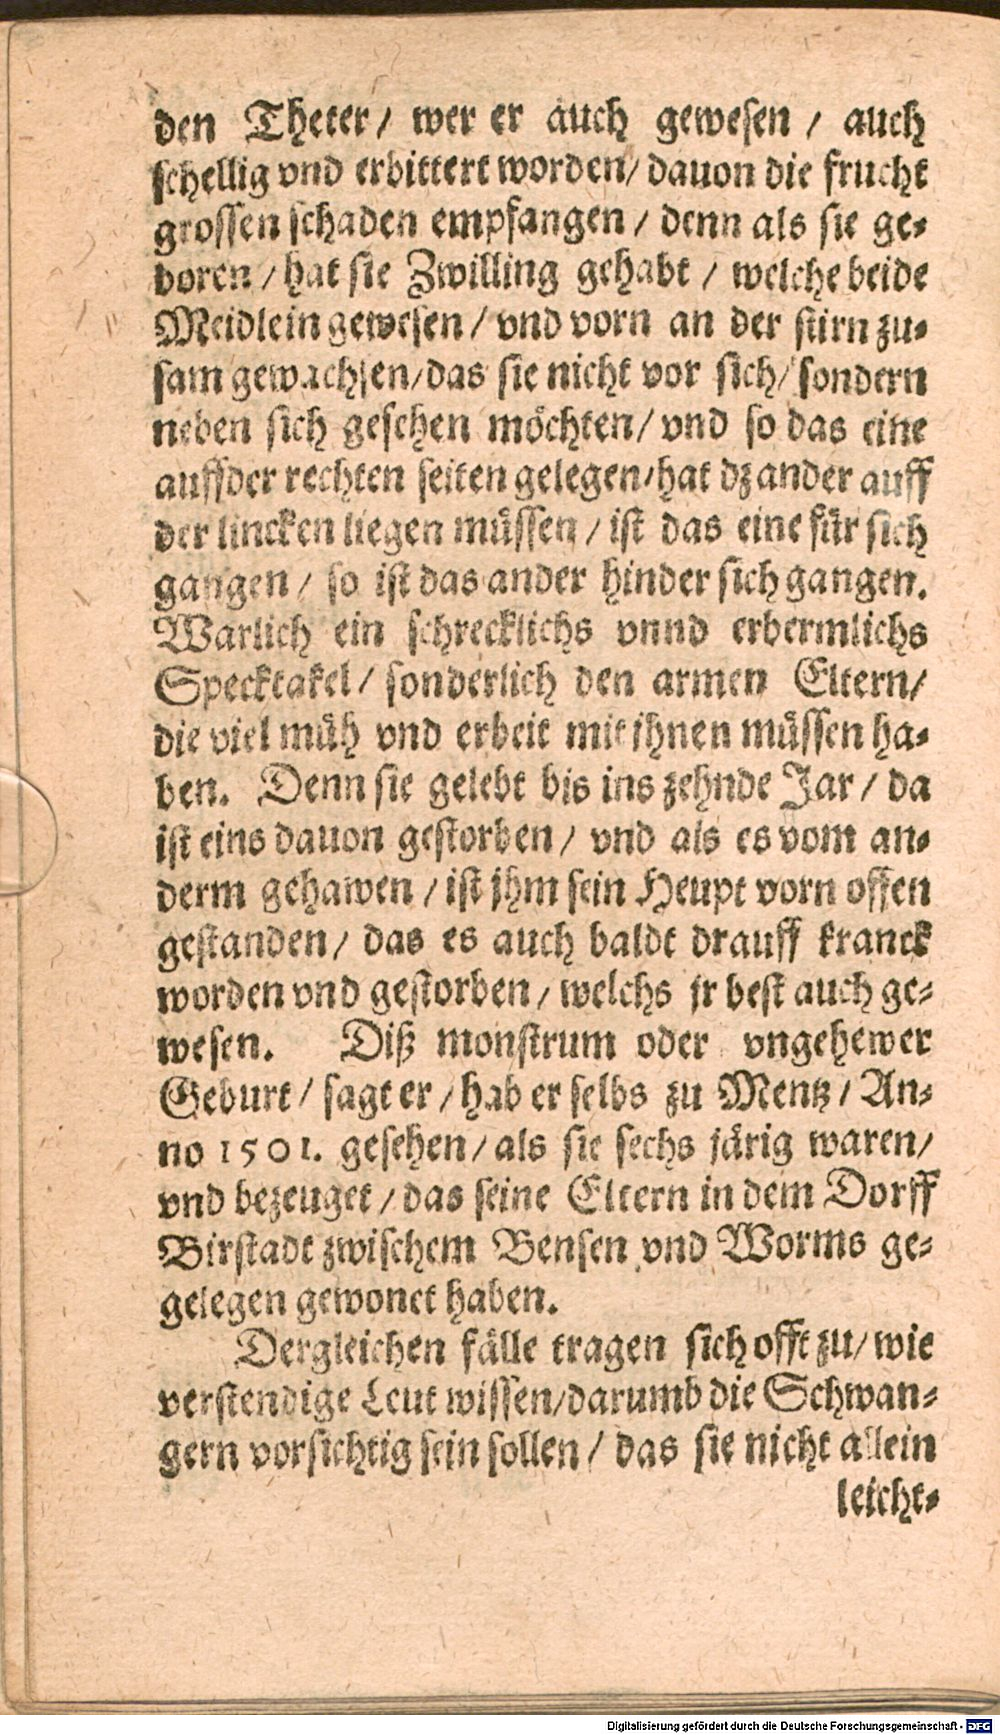 den Theter/ wer er auch gewesen / auch
schellig vnd erbittert worden/ dauon die frucht
grossen schaden empfangen / denn als sie ge-
boren / hat sie Zwilling gehabt / welche beide
Meidlein gewesen / vnd vorn an der stirn zu-
sam gewachsen/das sie nicht vor sich/ sondern
neben sich gesehen möchten/ vnd so das eine
auffder rechten seiten gelegen/hat dz ander auff
der lincken liegen müssen / ist das eine für sich
gangen / so ist das ander hinder sich gangen.
Warlich ein schrecklichs vnnd erbermlichs
Specktakel/ sonderlich den armen Eltern/
die viel müh vnd erbeit mit jhnen müssen ha-
ben. Denn sie gelebt bis ins zehnde Jar / da
ist eins dauon gestorben / vnd als es vom an-
derm gehawen / ist jhm sein Heupt vorn offen
gestanden/ das es auch baldt drauff kranck
worden vnd gestorben / welchs jr best auch ge-
wesen. Diß monstrum oder vngehewer
Geburt / sagt er / hab er selbs zu Mentz / An-
no 1501. gesehen / als sie sechs järig waren/
vnd bezeuget / das seine Eltern in dem Dorff
Birstadt zwischem Bensen vnd Worms ge-
gelegen gewonet haben.
Dergleichen fälle tragen sich offt zu/ wie
verstendige Leut wissen/darumb die Schwan-
gern vorsichtig sein sollen / das sie nicht allein
leicht-
Digitalisierung gefördert durch die Deutsche Forschungsgemeinschaft - DFG